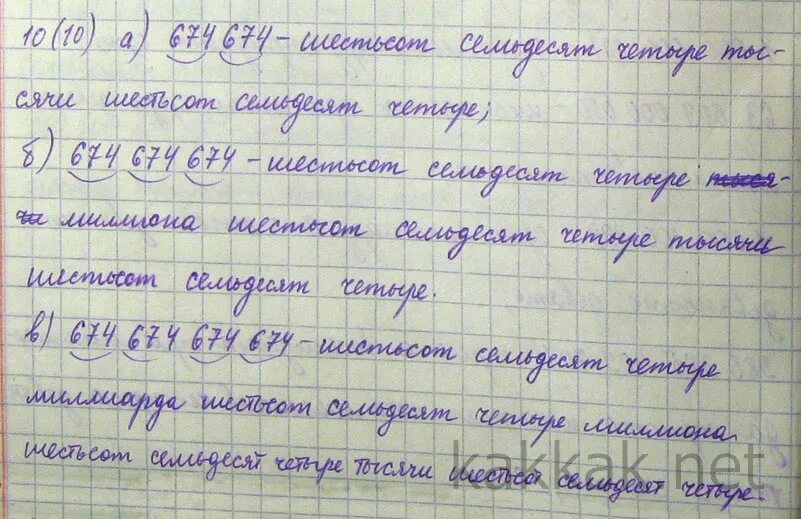 10(10) а) 674 674 – шестьсот семьдесят четыре ты-
сячи шестьсот семьдесят четыре;
б) 674 674 674 – шестьсот семьдесят четыре тыся-
чи миллиона шестьсот семьдесят четыре тысячи
шестьсот семьдесят четыре.
в) 674 674 674 674 – шестьсот семьдесят четыре
миллиарда шестьсот семьдесят четыре миллиона
шестьсот семьдесят четыре тысячи шестьсот семьдесят четыре.
kakkak.net